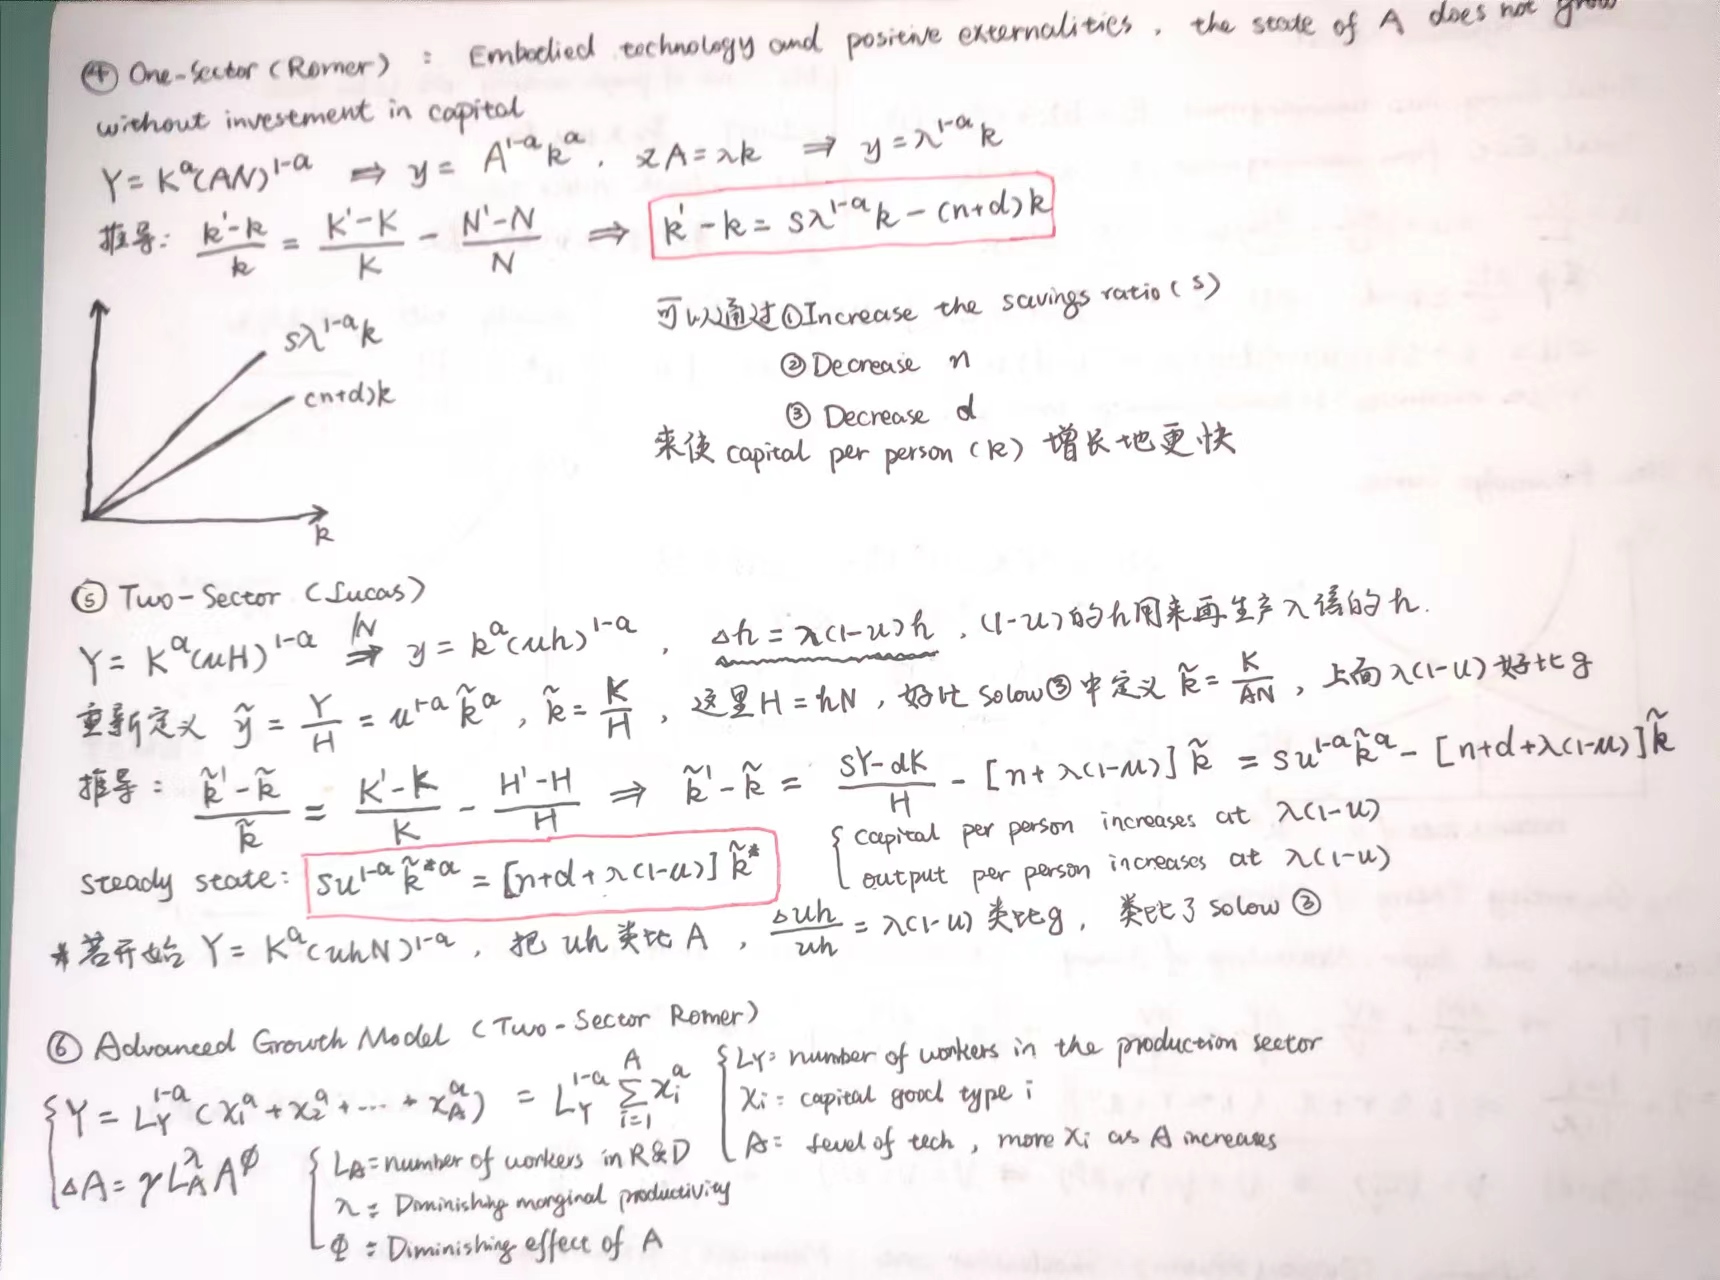 ④ One-Sector (Romer) : Embodied technology and positive externalities, the state of A does not grow
without investment in capital
Y = K^α(AN)^{1-α} ⇒ y = A^{1-α}k^α, 又A=λk ⇒ y = λ^{1-α}k
推导: (k'-k)/k = (K'-K)/K - (N'-N)/N ⇒ k'-k = sλ^{1-α}k - (n+d)k
sλ^{1-α}k
(n+d)k
k
可以通过①Increase the savings ratio (s)
② Decrease n
③ Decrease d
来使 capital per person (k) 增长地更快
⑤ Two-Sector (Lucas)
Y = K^α(uH)^{1-α} /N ⇒ y = k^α(uh)^{1-α}, Δh = λ(1-u)h, (1-u)的h用来再生产λ倍的h.
重新定义 ỹ = Y/H = u^{1-α}k̃^α, k̃ = K/H, 这里H=hN, 好比 Solow③中定义 k̃ = K/AN, 上面λ(1-u)好比g
推导: (k̃'-k̃)/k̃ = (K'-K)/K - (H'-H)/H ⇒ k̃'-k̃ = (sY-dK)/H - [n+λ(1-u)]k̃ = su^{1-α}k̃^α - [n+d+λ(1-u)]k̃
steady state: su^{1-α}k̃*^α = [n+d+λ(1-u)]k̃*
{ capital per person increases at λ(1-u)
output per person increases at λ(1-u)
* 若开始 Y = K^α(uhN)^{1-α}, 把 uh 类比 A, Δuh/uh = λ(1-u) 类比g, 类比了 Solow ③
⑥ Advanced Growth Model (Two-Sector Romer)
{ Y = L_Y^{1-α}(x_1^α + x_2^α + ... + x_A^α) = L_Y^{1-α} Σ_{i=1}^{A} x_i^α
ΔA = γL_A^λ A^φ
{ L_Y: number of workers in the production sector
X_i = capital good type i
A = level of tech, more X_i as A increases
{ L_A = number of workers in R&D
λ = Diminishing marginal productivity
Φ = Diminishing effect of A